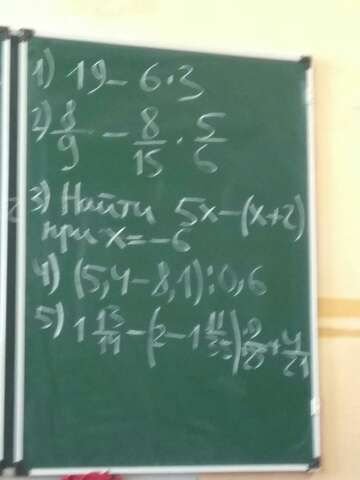 1) 19 - 6 · 3
2) 8/9 - 8/15 · 5/6
3) Найти 5x - (x+2)
при x = -6
4) (5,4 - 8,1) : 0,6
5) 1 13/14 - (2 - 1